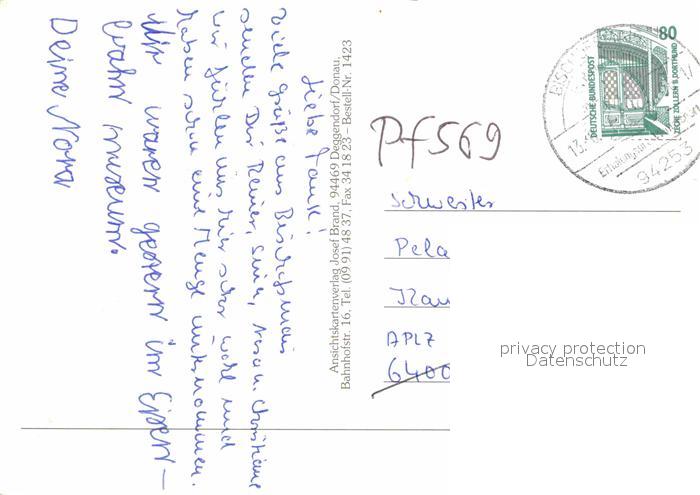 Liebe Tante!
Viele Grüße aus Bischofsmais
senden Dir Reiner, Sina, Nora u. Christiane
Wir fühlen uns hier sehr wohl und
haben schon eine Menge unternommen.
Wir waren gestern im Eisen-
bahn museum.
Deine Nora
Ansichtskartenverlag Josef Brand, 94469 Deggendorf/Donau,
Bahnhofstr. 16, Tel. (09 91) 48 37, Fax 34 18 23 – Bestell-Nr. 1423
Pf 569
80
DEUTSCHE BUNDESPOST
ZECHE ZOLLERN II, DORTMUND
BISCH
13.
Erholungsort
94253
Schwester
Pela
APLZ
6400
privacy protection
Datenschutz